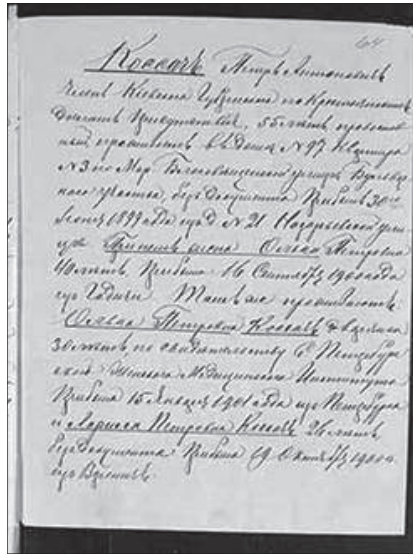 64
Косачъ Петръ Антоновичъ
Членъ Кіевскаго Губернскаго по Крестьянскимъ
Дѣламъ Присутствія, 55 лѣтъ, православ
ный проживаетъ въ домѣ №97 квартира
№3 по Мар. Благовѣщенской улицѣ Бульвар
наго участка, безъ документа Прибылъ 30го
1899 года изъ д. №21 Назарьевской ули
цы жена Ольга Петровна
40 лѣтъ, Прибыла 16 Сентября 1900 года
изъ Гадяча. Тамъ же проживаютъ
Ольга Петровна Косачъ дѣвица
30 лѣтъ, по свидѣтельству С. Петербург
скаго Женскаго Медицинскаго Института
Прибыла 15 Января 1901 года изъ Петербурга
и Лариса Петровна Косачъ 26 лѣтъ
безъ документа Прибыла 19 Октября 1900 г.
изъ